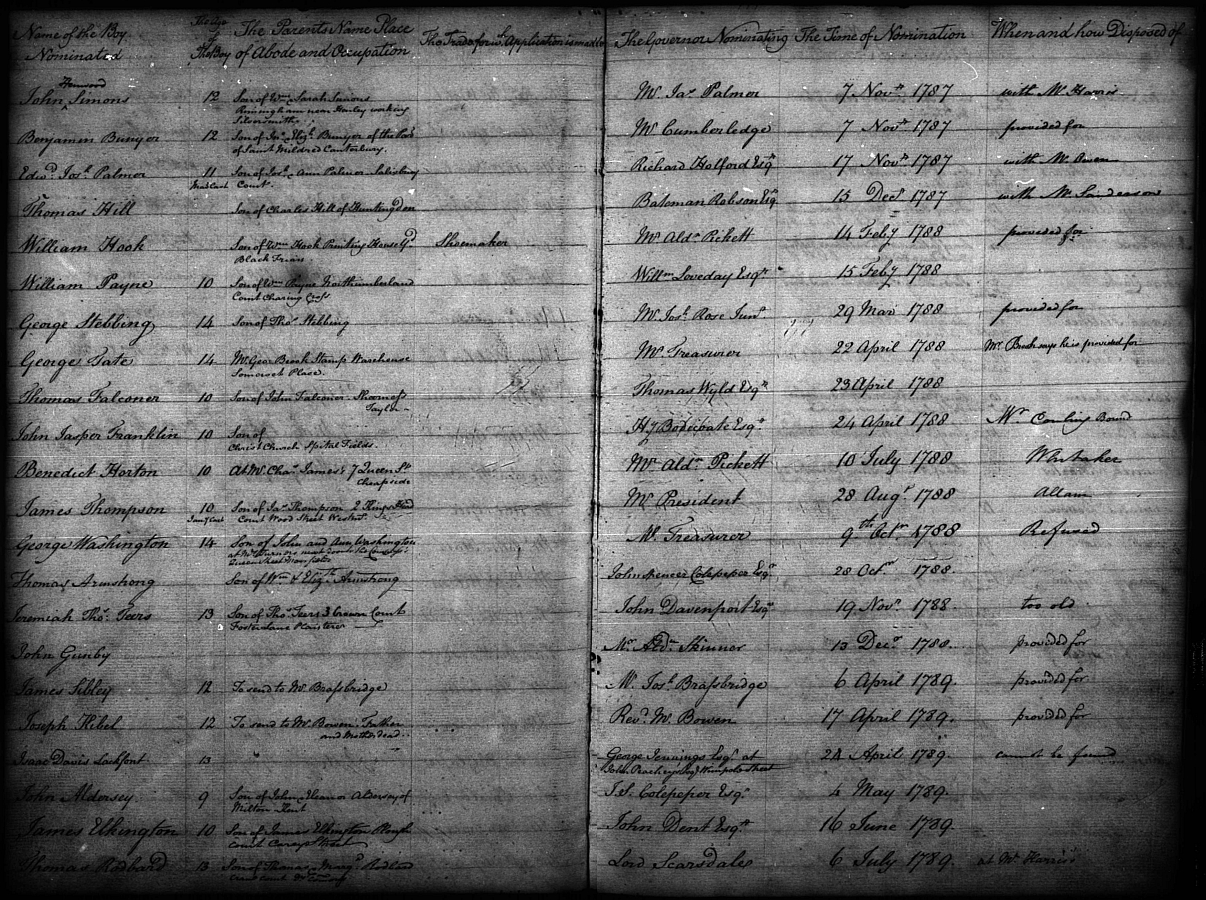 Name of the Boy Nominated The Age of The Boy The Parents Name Place of Abode and Occupation The Trade for wh. Application is made The Governor Nominating The Time of Nomination When and how Disposed of
Henwood
John Simons 12 Son of Wm & Sarah Simons Mr Jas Palmer 7 Novr 1787 with Mr Harris
near Henley working
Silversmiths
Benjamin Bunyer 12 Son of Jno & Elizh Bunyer of the Par Mr Cumberledge 7 Novr 1787 provided for
of Saint Mildred Canterbury.
Edwd Josh Palmer 11 Son of Josh & Ann Palmer Salisbury Richard Holford Esqr 17 Novr 1787 with Mr Bowen
Court
Thomas Hill Son of Charles Hill of Huntingdon Bateman Robson Esqr 15 Decr 1787 with Mr Sanderson
William Hook Son of Wm Hook Printing House Yd Shoemaker Mr Aldn Pickett 14 Feby 1788 provided for
Black Friars
William Payne 10 Son of Wm Payne Northumberland Willm Loveday Esqr 15 Feby 1788
Court Charing Cross
George Stebbing 14 Son of Thos Stebbing Mr Josh Rose Junr 29 Mar 1788 provided for
George Tate 14 Mr Geor Brook Stamp Warehouse Mr Treasurer 22 April 1788 Mr Brook says he is provided for
Somerset Place.
Thomas Falconer 10 Son of John Falconer Thomas Wyld Esqr 23 April 1788
Taylor
John Jasper Franklin 10 Son of Hy Bodicoate Esqr 24 April 1788 Mr Bound
Christ Church Spital Fields.
Benedict Horton 10 At Mr Chas James's 7 Queen St Mr Aldn Pickett 10 July 1788 Whitaker
Cheapside
James Thompson 10 Son of Jas Thompson 2 Kings Head Mr President 28 Augt 1788 Allam
Court Wood Street
George Washington 14 Son of John and Ann Washington Mr Treasurer 9th Octr 1788 Refused
at Mr next door to the
Queen Street
Thomas Armstrong Son of Wm & Elizh Armstrong John Spencer Colepeper Esqr 28 Octr 1788
Jeremiah Thos Teers 13 Son of Thos Teers 3 Crown Court John Davenport Esqr 19 Novr 1788 too old
Foster Lane Plaisterer
John Gunby Mr Aldn Skinner 13 Decr 1788 provided for
James Sibley 12 To send to Mr Brassbridge Mr Josh Brassbridge 6 April 1789 provided for
Joseph Hibel 12 To send to Mr Bowen. Father Revd Mr Bowen 17 April 1789 provided for
and Mother dead
Isaac Davis Lackfont 13 George Jennings Esqr at 24 April 1789 cannot be found
Wimpole Street
John Aldersey 9 Son of John & Eleanor Aldersey of J.S. Colepeper Esqr 4 May 1789
Milton Kent
James Elkington 10 Son of James Elkington Plough John Dent Esqr 16 June 1789
Court Carey Street
Thomas Rodbard 13 Son of Thomas & Margt Rodbard Lord Scarsdale 6 July 1789 at Mr Harris's